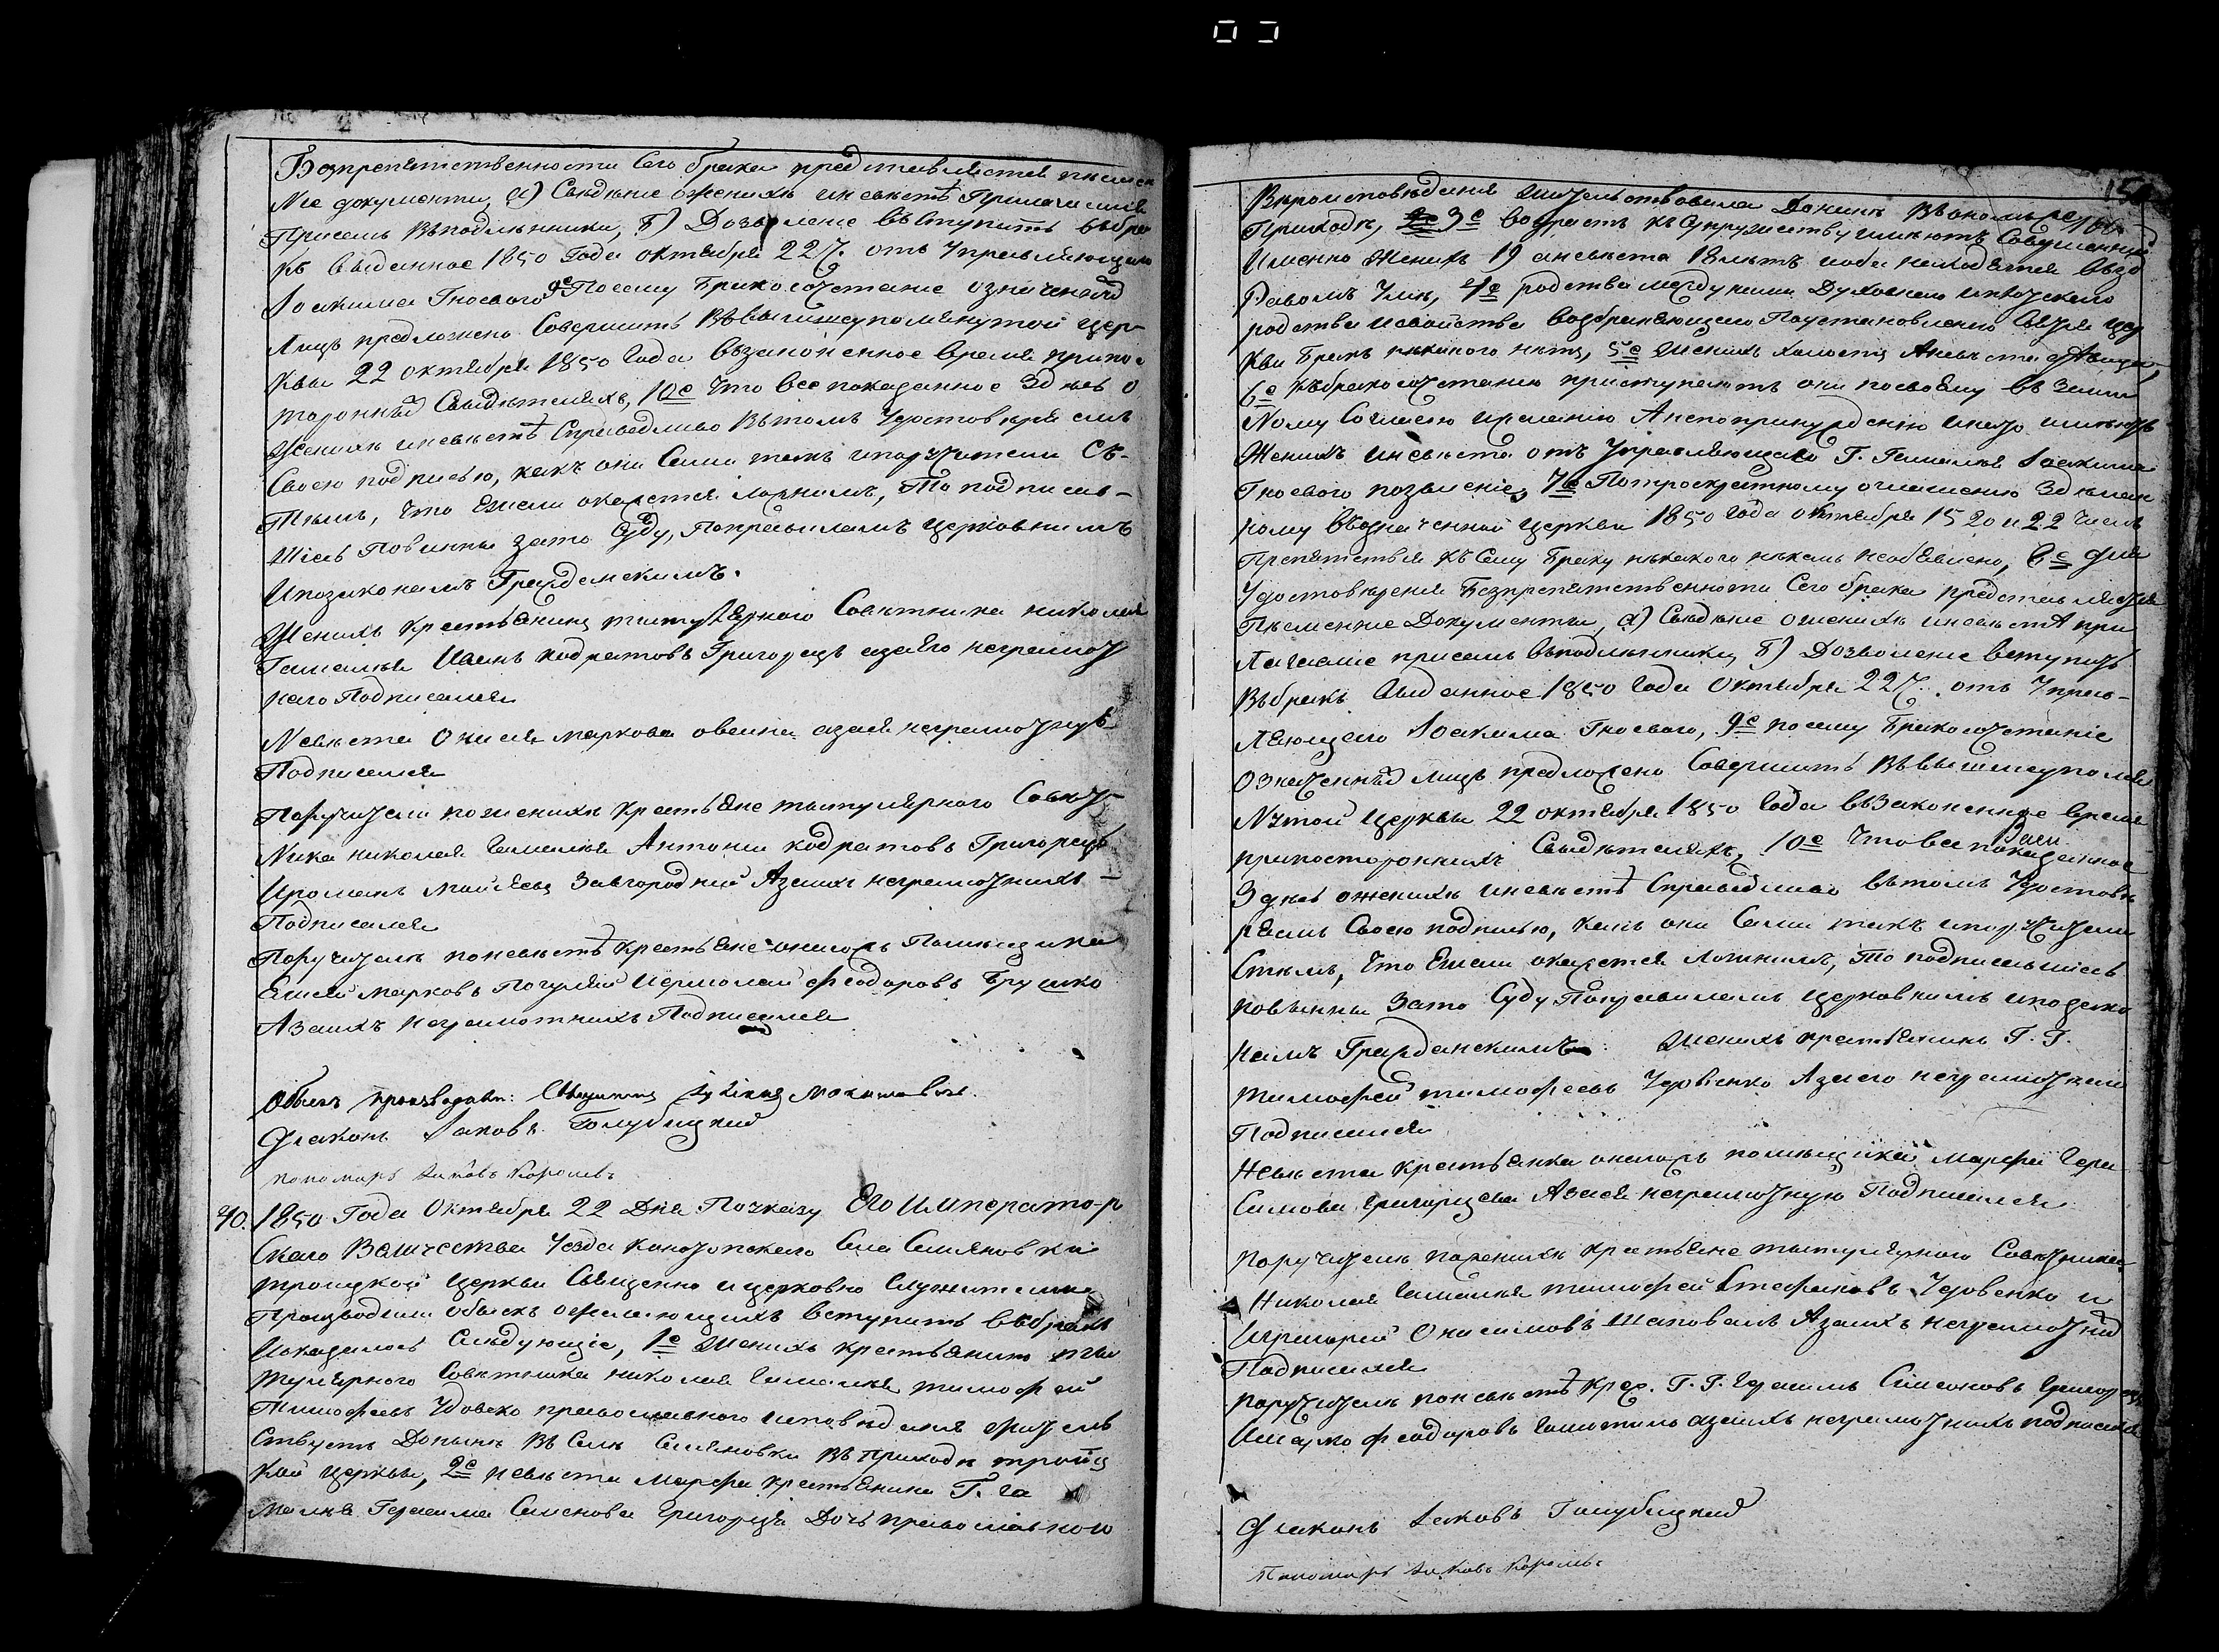 Безпрепятственности Сего брака представляется письмен
Ніе документи, а) Сведение о женихе и невесте Прилагаемия
Присемъ Въподлиннике, б) Дозволение Въступить въбра
къ выданное 1850 Года октября 22 Ч. отъ Управляющаго
Іоакима Гноеваго 9е Посему Бракосочетание означенныхъ
Лицъ предложено Совершить Въвышеупомянутой Цер-
кви 22 октября 1850 Года въ законенное время при пос
тороннихъ Свидетеляхъ, 10е Что все показанное Здесь о
женихе и невесте Справедливо Вътомъ Удостовъряемъ
Своею подписью, какъ они Сами такъ и поручители Съ-
Темъ, что Ежели окажется ложнимъ, То подписав-
шіеся Повинны зато Суду, Поправиламъ Церковнимъ
Ипозаконамъ Гражданскимъ.
Женихъ крестьянинъ титулярного Советника николая
Гамалея Иванъ кодратовъ Григорецъ азаего неграмот
наго Подписался
Невеста маркова азаея неграмотную
Подписался
Поручители пожениху крестьяне титулярного Совет-
Ника николая Гамалея Антонъ кодратовъ Григорецъ
Ироманъ Завгородний Азаихъ неграмотнихъ
Подписался
Поручители поневесте крестьяне онихожъ Помещика
Елисей марковъ и ермолай феодоровъ
Азаихъ неграмотнихъ Подписался
Обыскъ производили: Священникъ
Діаконъ Іаковъ Голубицкий
пономаръ Іаковъ Король
40. 1850 Года Октября 22 Дня Поуказу Его Император
Скаго Величества Уезда Конотопскаго Села Семяновки
троицкой церкви Священно и церковно Служители
Производили обыскъ ожелающихъ вступить въбракъ
Иоказалось Следующіе, 1е Женихъ крестьянинъ ты
тулярного Советника николая Гамалея тимофей
Тимофеевъ православного исповедания житель
Ствуетъ Доныне Въ Селе Семяновки Въ Приходе троиц
кой церкви, 2е невеста Марфа крестьянина Г. Га
малея Герасима Семенова Григорця Дочъ православного
150
Вероисповедания жительствовала Доныне Въономъ же
Приходе, 3е возрастъ къ Супружеству имеютъ Совершенный
Именно Женихъ 19 аневеста 18 летъ иоба находятся въздо
Равомъ Уме, 4е родства между ними Духовного иплотскаго
родства исвойства возбраняющаго Поустановлению Святой Цер
кви Бракъ никакого нетъ, 5е Женихъ холостъ Аневеста Девица,
6е къбракосочетанию приступаютъ они посвоему въ Заим
Ному Согласию ижеланию Анепопринуждению инато имеютъ
Женихъ иневеста отъ Управляющаго Г. Гамалея Іоакима
Гноеваго позволение, 7е Потроекратному оглашению Зделан
ному въозначенной Церкви 1850 года октября 15 20 и 22 Чиселъ
Препятствия къ Сему Браку никакого никемъ необявлено, 8е для
Удостоверения Безпрепятственности Сего брака представляются
Писменние Документы, а) Сведение ожениха иневеста При
Лагаемие присемъ въподлиннике, б) Дозволение вступить
Въбракъ Выданное 1850 Года Октября 22 Ч. отъ Управ-
Ляющаго Іоакима Гноеваго, 9е посему Бракосочетаніе
Означенныхъ лицъ предложено Совершить Въвышеупомя
Нутой Церкви 22 октября 1850 Года въЗаконенное время
припостороннихъ Свидетеляхъ, 10е Что все показанное
Здесь ожениха иневесте Справедливо вътомъ Удостове
ряемъ Своею подписью, какъ они Сами такъ ипоручители
Стемъ, Что Ежели окажется Ложнимъ, То подписавшіесь
повынны Зато Суду Поправиламъ церковнимъ ипозако
намъ Гражданскимъ. Женихъ крестьянинъ Г. Г.
тимофей тимофеевъ Удовенко Азаего неграмотнаго
Подписался
Невеста крестьянка онагожъ помещика Марфа Гера
Симова Григорцева Азаея неграмотную Подписался
Поручители пожениху крестьяне тытулярного Советника
Николая Гамалея тимофей Стефановъ Удовенко и
Игригорий Онисимовъ Шаповалъ Азаихъ неграмотныхъ
Подписался
поручители поневесте крес. Г. Г. Герасимъ Симеоновъ Григорецъ
феодоровъ азаихъ неграмотнихъ подписался
Діаконъ Іаковъ Голубицкий
Пономаръ Іаковъ Король